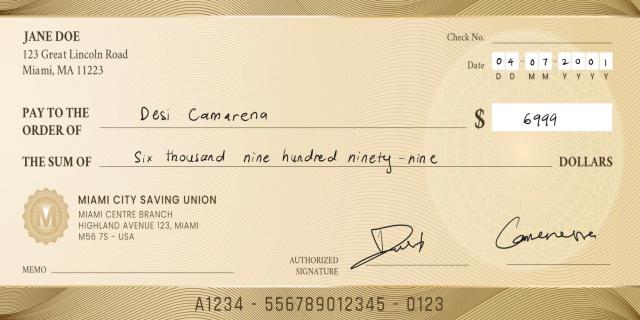 JANE DOE
123 Great Lincoln Road
Miami, MA 11223
Check No.
Date 04-07-2001
D D M M Y Y Y Y
PAY TO THE ORDER OF Desi Camarena $ 6999
THE SUM OF Six thousand nine hundred ninety-nine DOLLARS
M
MIAMI CITY SAVING UNION
MIAMI CENTRE BRANCH
HIGHLAND AVENUE 123, MIAMI
M56 7S - USA
MEMO
AUTHORIZED SIGNATURE
A1234 - 556789012345 - 0123